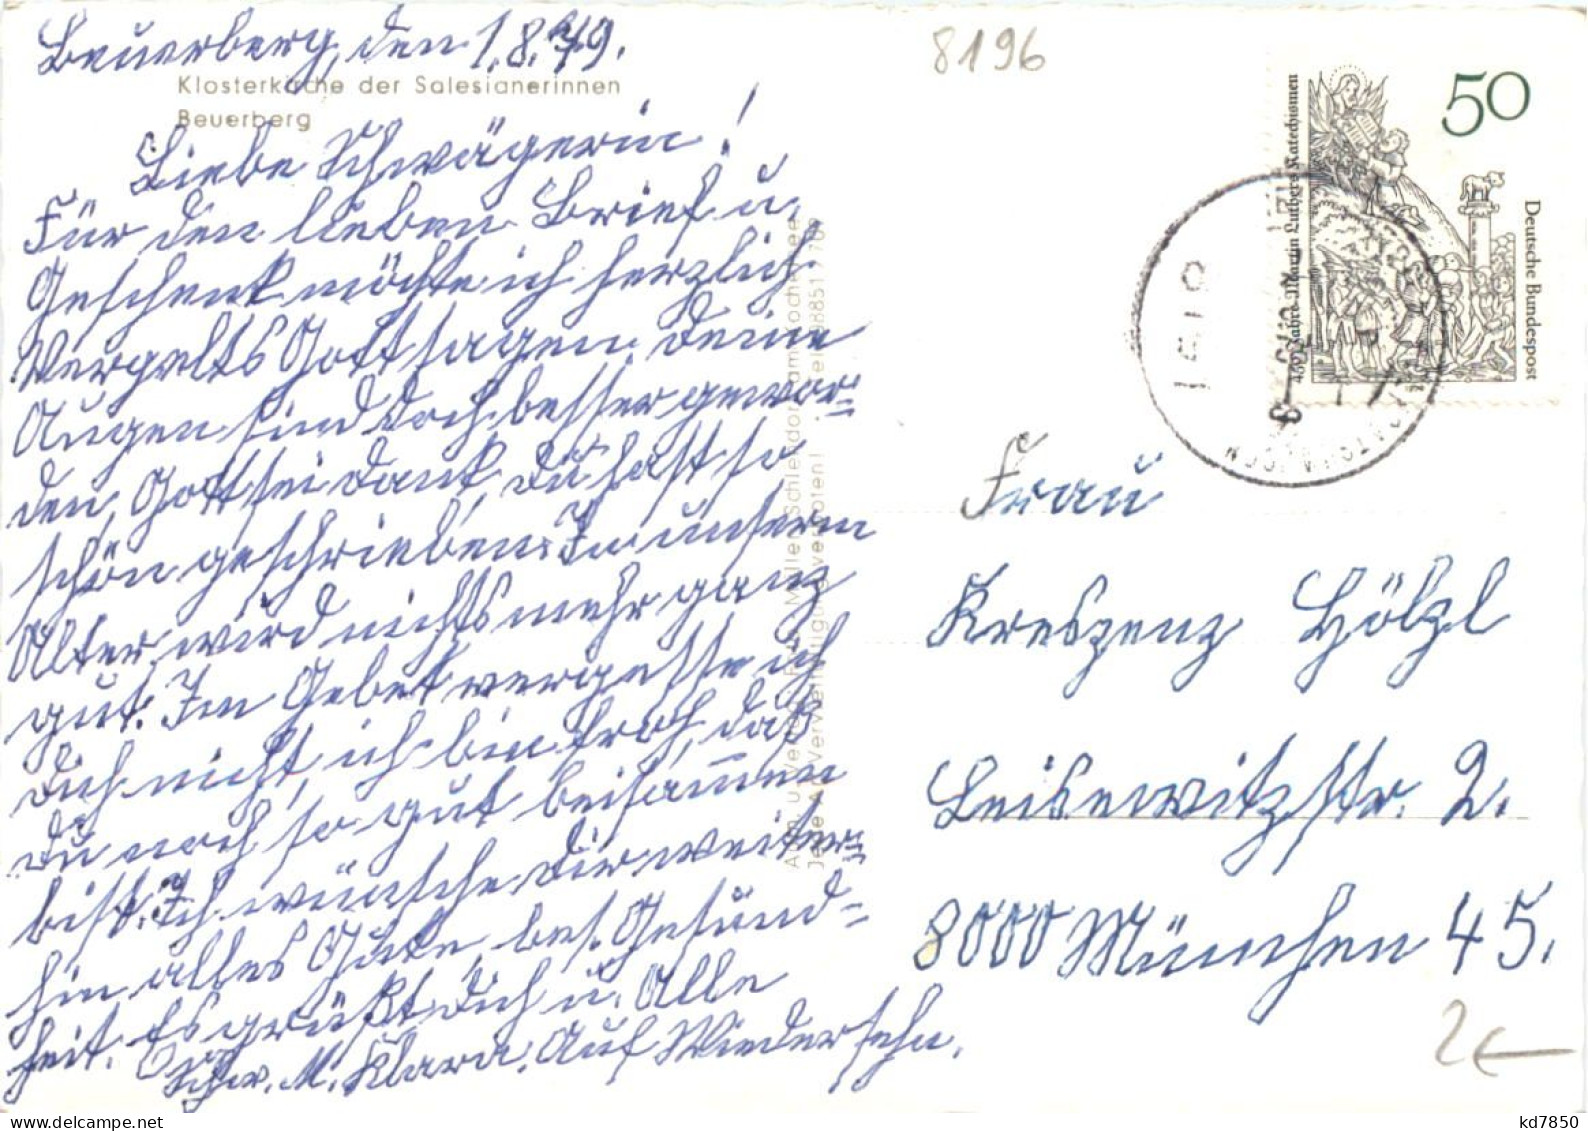 Beuerberg, den 1.8.79.
8196
Klosterkirche der Salesianerinnen
Beuerberg
Liebe Schwägerin!
Für den lieben Brief u.
Geschenk möchte ich herzlich
Vergelts Gott sagen. Deine
Augen sind doch besser gewor=
den, Gott sei dank, Du hast so
schön geschrieben. In unserm
Alter wird nichts mehr ganz
gut. Im Gebet vergesse ich
Dich nicht, ich bin froh, daß
Du noch so gut beisammen
bist. Ich wünsche Dir weiter=
hin alles Gute, bes. Gesund=
heit. Es grüßt Dich u. Alle
Schw. M. Klara. Auf Wiedersehn.
50
Deutsche Bundespost
450 Jahre Martin Luthers Katechismen
Frau
Kreszenz Hölzl
Leisewitzstr. 2.
8000 München 45.
2€
kd7850